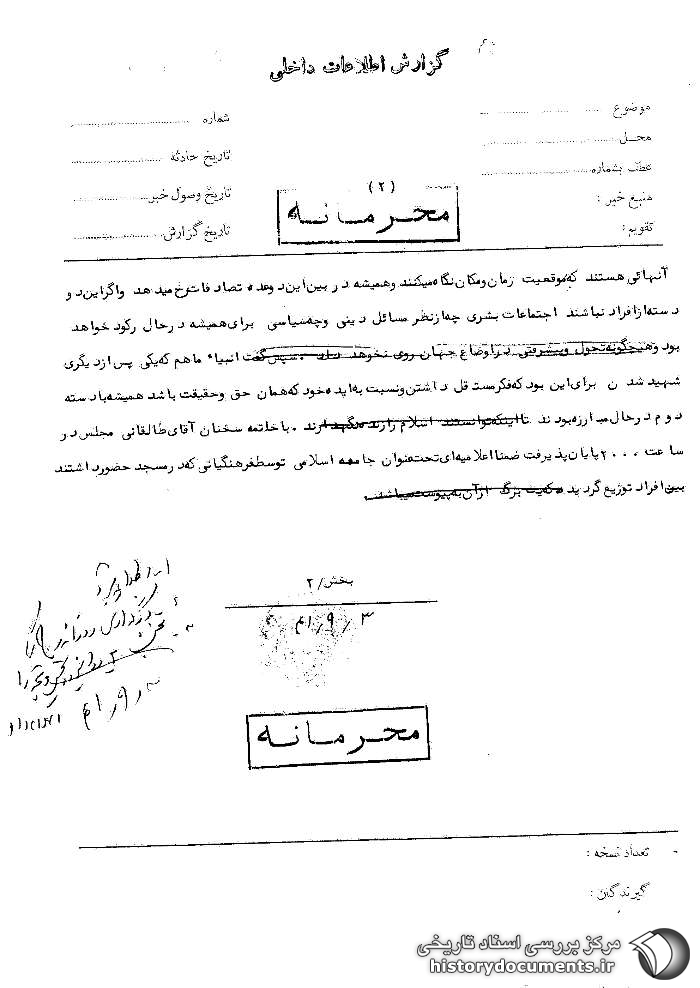 گزارش اطلاعات داخلی
موضوع
شماره
محل
تاریخ حادثه
عطف بشماره
تاریخ وصول خبر
منبع خبر :
تاریخ گزارش
تقویم :
(۲)
محرمانه
آنهائی هستند که موقعیت زمان و مکان نگاه میکنند و همیشه در بین این دو عده تصادفات رخ میدهد واگر این دو
دسته از افراد نباشند اجتماعات بشری چه از نظر مسائل دینی و چه سیاسی برای همیشه در حال رکود خواهد
بود و هیچگونه تحول و پیشرفتی در اوضاع جهان روی نخواهد داد . سپس گفت انبیاء ما هم که یکی پس از دیگری
شهید شدن برای این بود که فکر مستقل داشتن و نسبت به ایده خود که همان حق و حقیقت باشد همیشه با دسته
دوم در حال مبارزه بودند تا اینکه توانستند اسلام را زنده نگهدارند . با خاتمه سخنان آقای طالقانی مجلس در
ساعت ۲۰۰۰ پایان پذیرفت ضمنا اعلامیه ای تحت عنوان جامعه اسلامی توسط فرهنگیانی که در مسجد حضور داشتند
بین افراد توزیع گردید که یک برگ از آن به پیوست میباشد .
بخش /۲
۳ /۹ /۴۱
محرمانه
تعداد نسخه :
گیرندگان :
مرکز بررسی اسناد تاریخی
historydocuments.ir